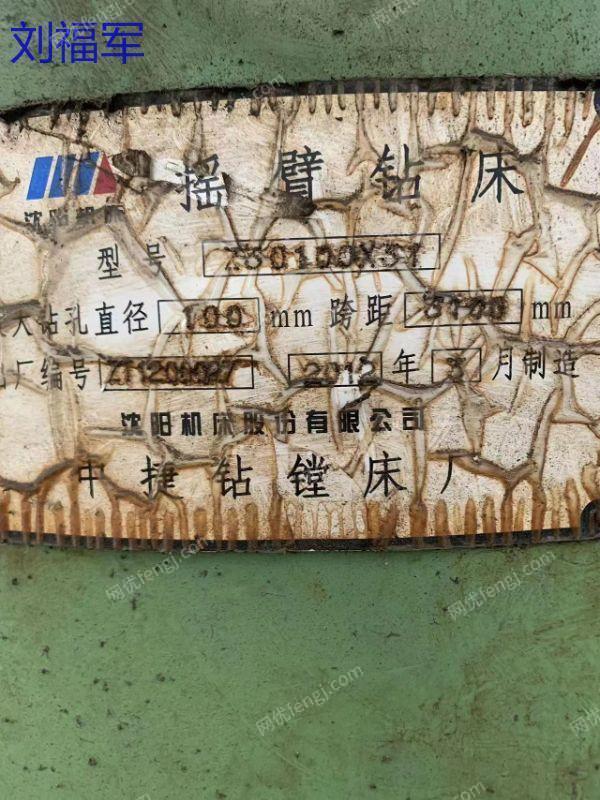 刘福军
沈阳机床
摇臂钻床
型号 Z30100X31
大钻孔直径 100 mm 跨距 3100 mm
厂编号 2012 年 3 月制造
沈阳机床股份有限公司
中捷钻镗床厂
网优fengj.com
网优fengj.com
网优fengj.com
网优fengj.com